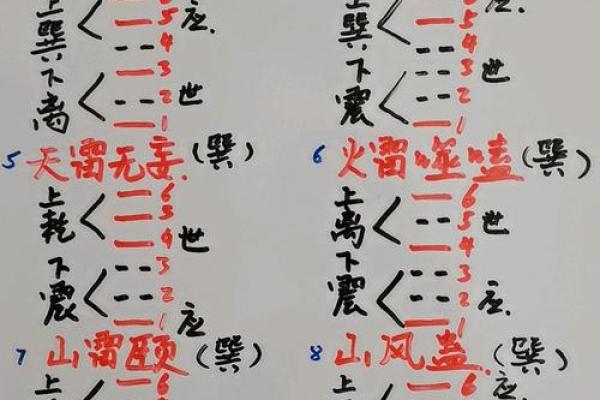 上 6
巽 5 应.
4
下 3
离 2 世
1
5 天雷无妄.(巽)
上 6
乾 5
4 世
下 3
震 2
1 应
7 山雷颐(巽)
上 6
上 6 应.
巽 5
4
下 3 世
震 2
1
6 火雷噬嗑(巽)
上 6
离 5 世
4
下 3
震 2 应.
1
8 山风蛊.(巽)
上 6 应.